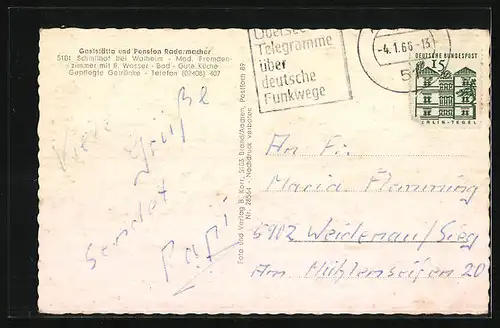 Gaststätte und Pension Radermacher
5101 Schmithof bei Walheim - Mod. Fremden-
zimmer mit fl. Wasser - Bad - Gute Küche
Gepflegte Getränke - Telefon (02408) 407
Grüße
sendet
Papi
Foto und Verlag B. Korr, 5103 Brand/Aachen, Postfach 89
Nr. 28564 - Nachdruck verboten
Übersee
Telegramme
über
deutsche
Funkwege
-4.1.66-13
DEUTSCHE BUNDESPOST
15
BERLIN-TEGEL
An Frl.
Maria Flemming
5902 Weidenau/Sieg
Am Mühlenseifen 20